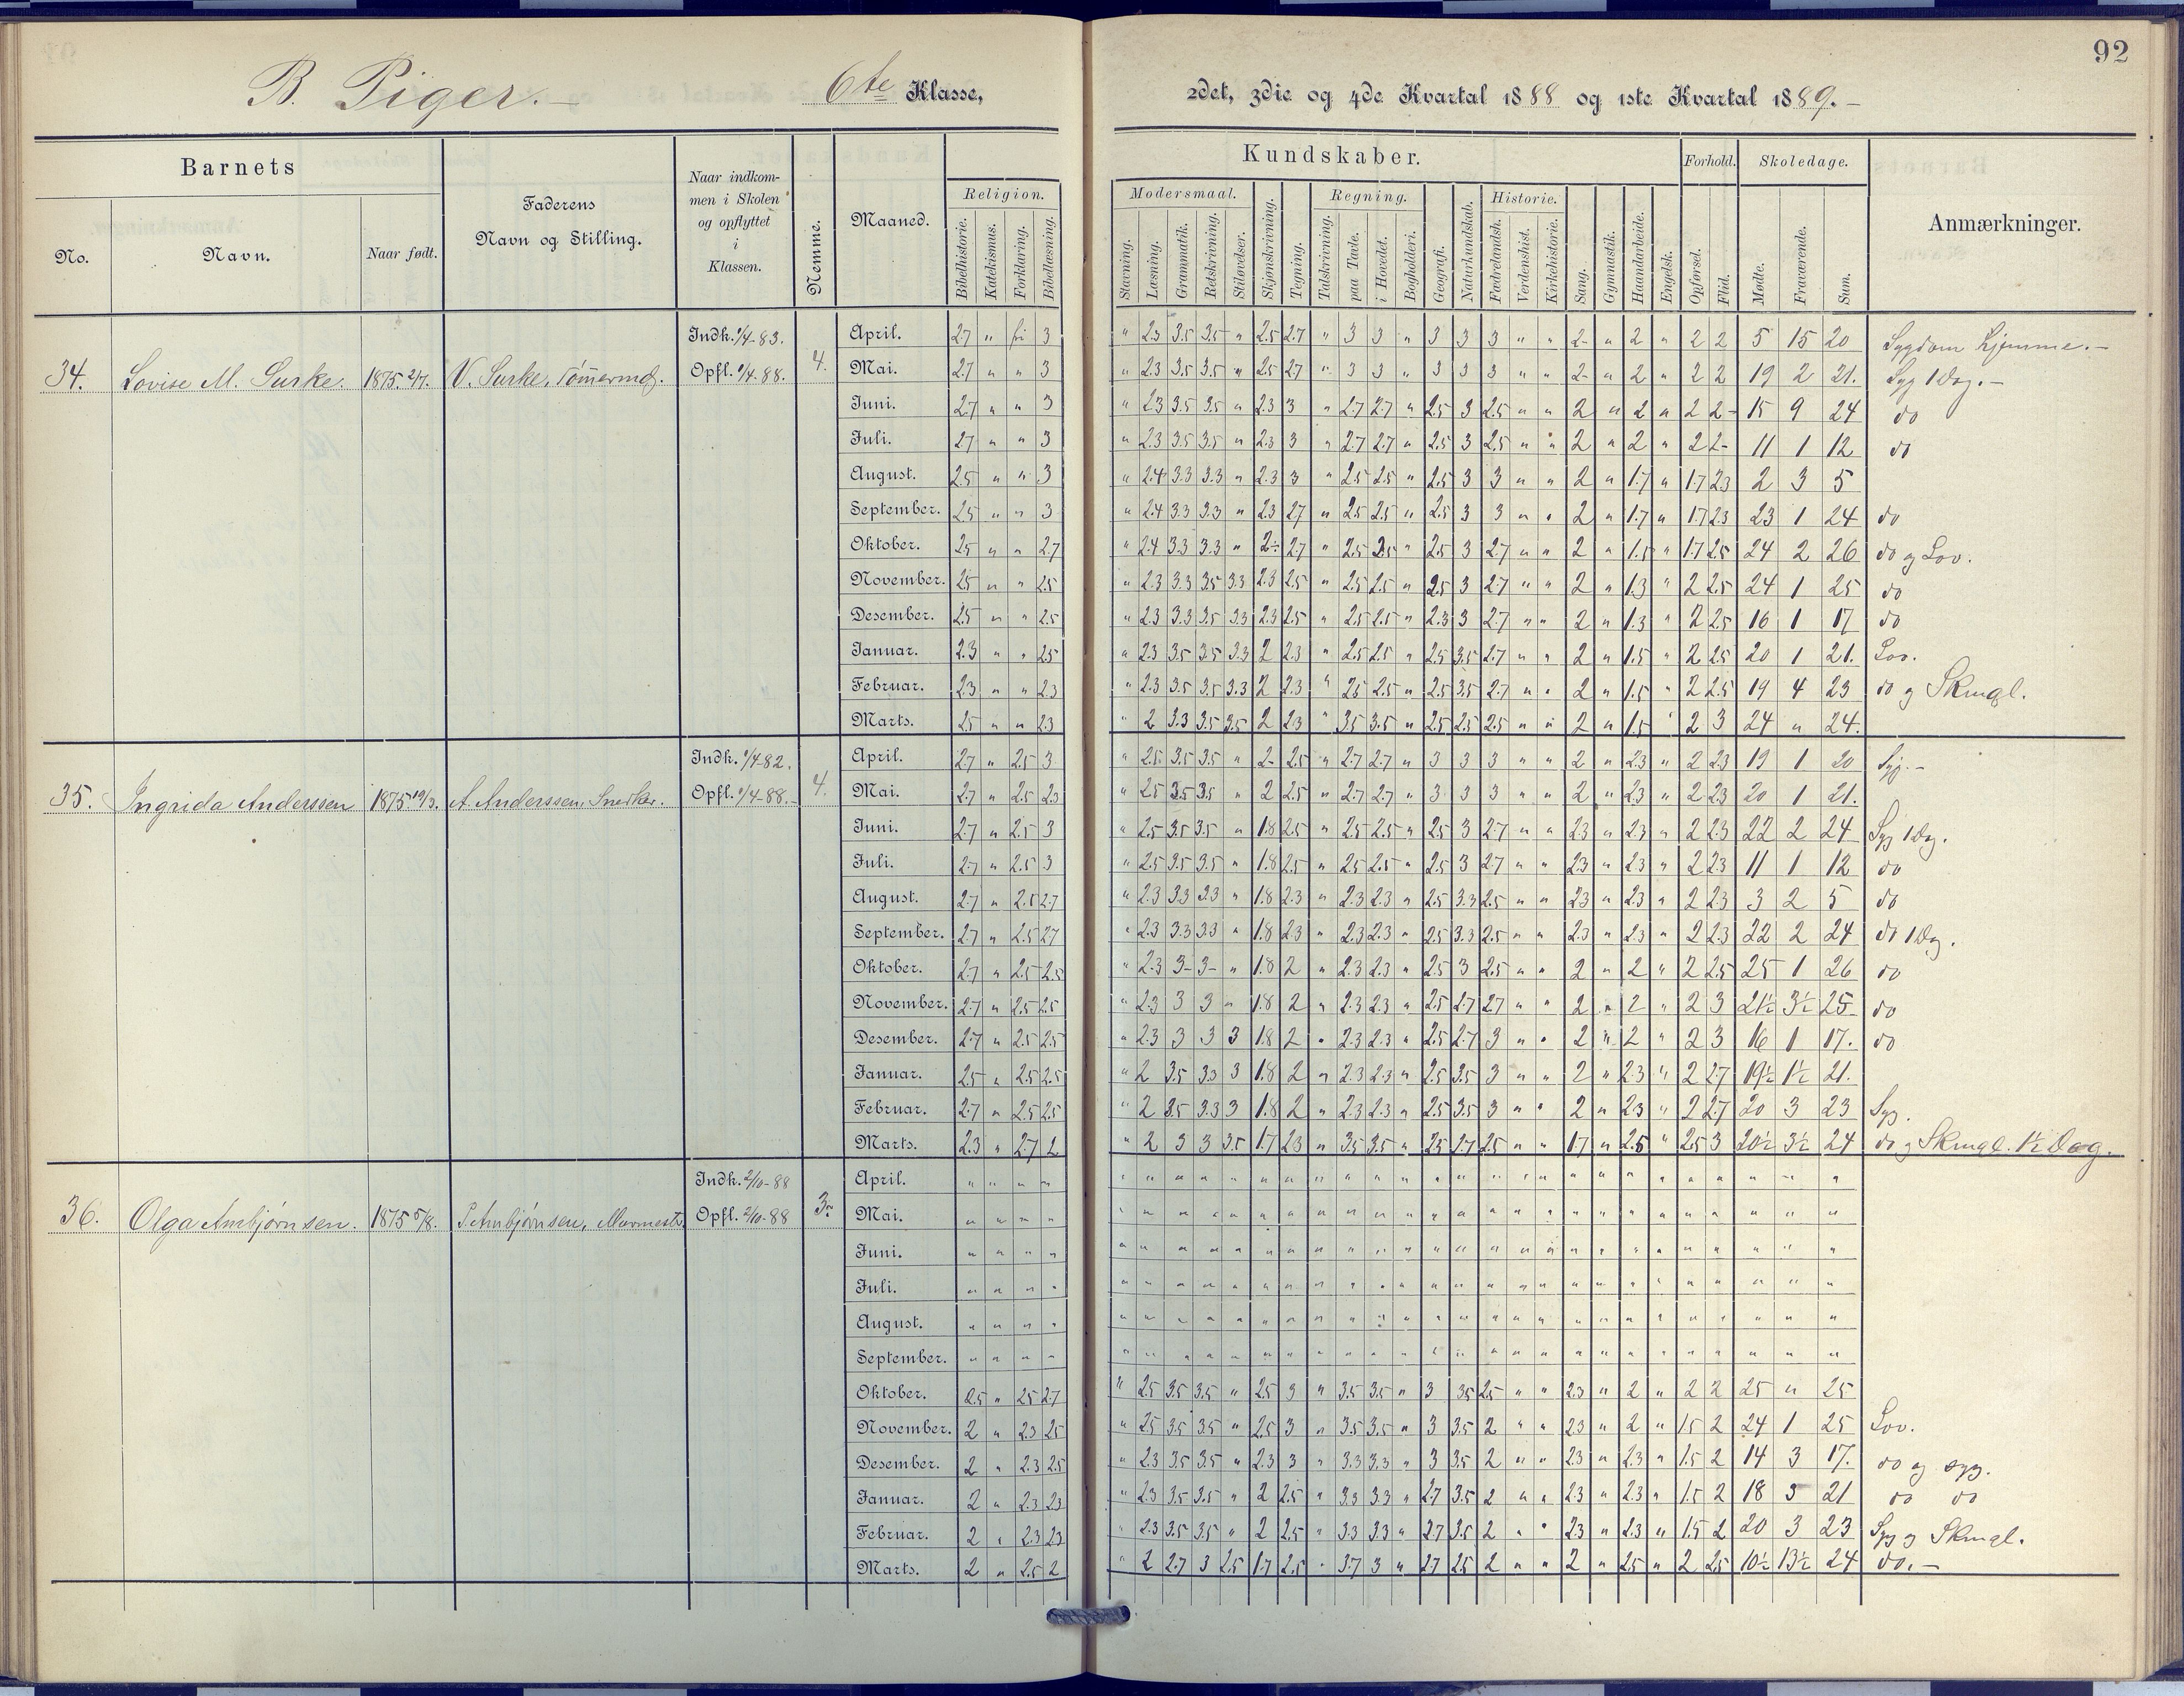 92
B. Piger.— 6te Klasse, 2det, 3die og 4de Kvartal 1888 og 1ste Kvartal 1889.—
Barnets
No.
Navn.
Naar født.
Faderens
Navn og Stilling.
Naar indkom-
men i Skolen
og opflyttet
i
Klassen.
Nemme.
Maaned.
Kundskaber.
Religion.
Bibelhistorie. Katekismus. Forklaring. Bibellæsning.
Modersmaal.
Stavning. Læsning. Grammatik. Retskrivning. Stiløvelser.
Skjønskrivning. Tegning.
Regning.
Talskrivning. paa Tavle. i Hovedet. Bogholderi.
Geografi. Naturkundskab.
Historie.
Fædrelandsk. Verdenshist. Kirkehistorie.
Sang. Gymnastik. Haandarbeide. Engelsk.
Forhold.
Opførsel. Flid.
Skoledage.
Mødte. Fraværende. Sum.
Anmærkninger.
34. Lovise M. Surke. 1875 2/7. V. Surke, Tømermd. Indk. 1/4-83. Opfl. 1/4-88. 4.
April. 2.7 " fri 3 " 2.3 3.5 3.5 " 2.5 2.7 " 3 3 " 3 3 3 " " 2- " 2 " 2 2 5 15 20 Sygdom Hjemme.—
Mai. 2.7 " " 3 " 2.3 3.5 3.5 " 2.5 2.7 " 3 3 " 3 3 3 " " 2- " 2 " 2 2 19 2 21. Syg 1 Dag.—
Juni. 2.7 " " 3 " 2.3 3.5 3.5 " 2.3 3 " 2.7 2.7 " 2.5 3 2.5 " " 2 " 2 " 2 2- 15 9 24 do
Juli. 2.7 " " 3 " 2.3 3.5 3.5 " 2.3 3 " 2.7 2.7 " 2.5 3 2.5 " " 2 " 2 " 2 2- 11 1 12 do
August. 2.5 " " 3 " 2.4 3.3 3.3 " 2.3 3 " 2.5 2.5 " 2.5 3 3 " " 2 " 1.7 " 1.7 2.3 2 3 5
September. 2.5 " " 3 " 2.4 3.3 3.3 " 2.3 2.7 " 2.5 2.5 " 2.5 3 3 " " 2 " 1.7 " 1.7 2.3 23 1 24 do
Oktober. 2.5 " " 2.7 " 2.4 3.3 3.3 " 2÷ 2.7 " 2.5 2.5 " 2.5 3 2.7 " " 2 " 1.5 " 1.7 2.5 24 2 26 do og Lov.
November. 2.5 " " 2.5 " 2.3 3.3 3.5 3.3 2.3 2.5 " 2.5 2.5 " 2.5 3 2.7 " " 2 " 1.3 " 2 2.5 24 1 25 do
Desember. 2.5 " " 2.5 " 2.3 3.3 3.5 3.3 2.3 2.5 " 2.5 2.5 " 2.3 3 2.7 " " 2 " 1.3 " 2 2.5 16 1 17 do
Januar. 2.3 " " 2.5 " 2.3 3.5 3.5 3.3 2 2.3 " 2.5 2.5 " 2.5 3.5 2.7 " " 2 " 1.5 " 2 2.5 20 1 21. Lov.
Februar. 2.3 " " 2.3 " 2.3 3.5 3.5 3.3 2 2.3 " 2.5 2.5 " 2.5 3.5 2.7 " " 2 " 1.5 " 2 2.5 19 4 23 do og Skmgl.
Marts. 2.5 " " 2.3 " 2 3.3 3.5 3.5 2 2.3 " 3.5 3.5 " 2.5 2.5 2.5 " " 2 " 1.5 " 2 3 24 " 24.
35. Ingrida Anderssen 1875 19/3. A. Anderssen, Snedker. Indk. 1/4-82. Opfl. 1/4-88.- 4.
April. 2.7 " 2.5 3 " 2.5 3.5 3.5 " 2- 2.5 " 2.7 2.7 " 3 3 3 " " 2 " 2.3 " 2 2.3 19 1 20 Syg.—
Mai. 2.7 " 2.5 2.3 " 2.5 3.5 3.5 " 2 2.5 " 2.7 2.7 " 3 3 3 " " 2 " 2.3 " 2 2.3 20 1 21.
Juni. 2.7 " 2.5 3 " 2.5 3.5 3.5 " 1.8 2.5 " 2.5 2.5 " 2.5 3 2.7 " " 2.3 " 2.3 " 2 2.3 22 2 24 Syg 1 Dag.
Juli. 2.7 " 2.5 3 " 2.5 3.5 3.5 " 1.8 2.5 " 2.5 2.5 " 2.5 3 2.7 " " 2.3 " 2.3 " 2 2.3 11 1 12 do
August. 2.7 " 2.5 2.7 " 2.3 3.3 3.3 " 1.8 2.3 " 2.3 2.3 " 2.5 3.3 2.5 " " 2.3 " 2.3 " 2 2.3 3 2 5 do
September. 2.7 " 2.5 2.7 " 2.3 3.3 3.3 " 1.8 2.3 " 2.3 2.3 " 2.5 3.3 2.5 " " 2.3 " 2.3 " 2 2.3 22 2 24 do 1 Dag.
Oktober. 2.7 " 2.5 2.5 " 2.3 3- 3- " 1.8 2 " 2.3 2.3 " 2.5 3 2.5 " " 2 " 2 " 2 2.5 25 1 26 do
November. 2.7 " 2.5 2.5 " 2.3 3 3 " 1.8 2 " 2.3 2.3 " 2.5 2.7 2.7 " " 2 " 2 " 2 3 21½ 3½ 25 do
Desember. 2.7 " 2.5 2.5 " 2.3 3 3 3 1.8 2 " 2.3 2.3 " 2.5 2.7 3 " " 2 " 2 " 2 3 16 1 17. do
Januar. 2.5 " 2.5 2.5 " 2 3.5 3.3 3 1.8 2 " 2.3 2.3 " 2.5 3.5 3 " " 2 " 2.3 " 2 2.7 19½ 1½ 21.
Februar. 2.7 " 2.5 2.5 " 2 3.5 3.3 3 1.8 2 " 2.3 2.3 " 2.5 3.5 3 " " 2 " 2.3 " 2 2.7 20 3 23 Syg.
Marts. 2.3 " 2.7 2 " 2 3 3 3.5 1.7 2.3 " 3.5 3.5 " 2.5 2.7 2.5 " " 1.7 " 2.5 " 2.5 3 20½ 3½ 24 do og Skmgl. 1½ Dag.
36. Olga Ambjørnsen. 1875 5/8. P. Ambjørnsen, Murmestr. Indk. 2/10-88 Opfl. 2/10-88 3-
April. " " " " " " " " " " " " " " " " " " " " " " " " " " " " "
Mai. " " " " " " " " " " " " " " " " " " " " " " " " " " " " "
Juni. " " " " " " " " " " " " " " " " " " " " " " " " " " " " "
Juli. " " " " " " " " " " " " " " " " " " " " " " " " " " " " "
August. " " " " " " " " " " " " " " " " " " " " " " " " " " " " "
September. " " " " " " " " " " " " " " " " " " " " " " " " " " " " "
Oktober. 2.5 " 2.5 2.7 " 2.5 3.5 3.5 " 2.5 3 " 3.5 3.5 " 3 3.5 2.5 " " 2.3 " 2 " 2 2 25 " 25
November. 2 " 2.3 2.5 " 2.5 3.5 3.5 " 2.5 3 " 3.5 3.5 " 3 3.5 2 " " 2.3 " 2 " 1.5 2 24 1 25 Lov.
Desember. 2 " 2.3 2.5 " 2.3 3.5 3.5 " 2.3 3 " 3.3 3.3 " 3 3.5 2 " " 2.3 " 2.3 " 1.5 2 14 3 17. do og syg.
Januar. 2 " 2.3 2.3 " 2.3 3.5 3.5 " 2 2.5 " 3.3 3.3 " 2.7 3.5 2 " " 2.3 " 2.3 " 1.5 2 18 3 21 do do
Februar. 2 " 2.3 2.3 " 2.3 3.5 3.5 " 2 2.5 " 3.3 3.3 " 2.7 3.5 2 " " 2.3 " 2.3 " 1.5 2 20 3 23 Syg og Skmgl.
Marts. 2 " 2.5 2 " 2 2.7 3 2.5 1.7 2.5 " 3.7 3 " 2.7 2.5 2 " " 2 " 2.5 " 2 2.5 10½ 13½ 24 do.—